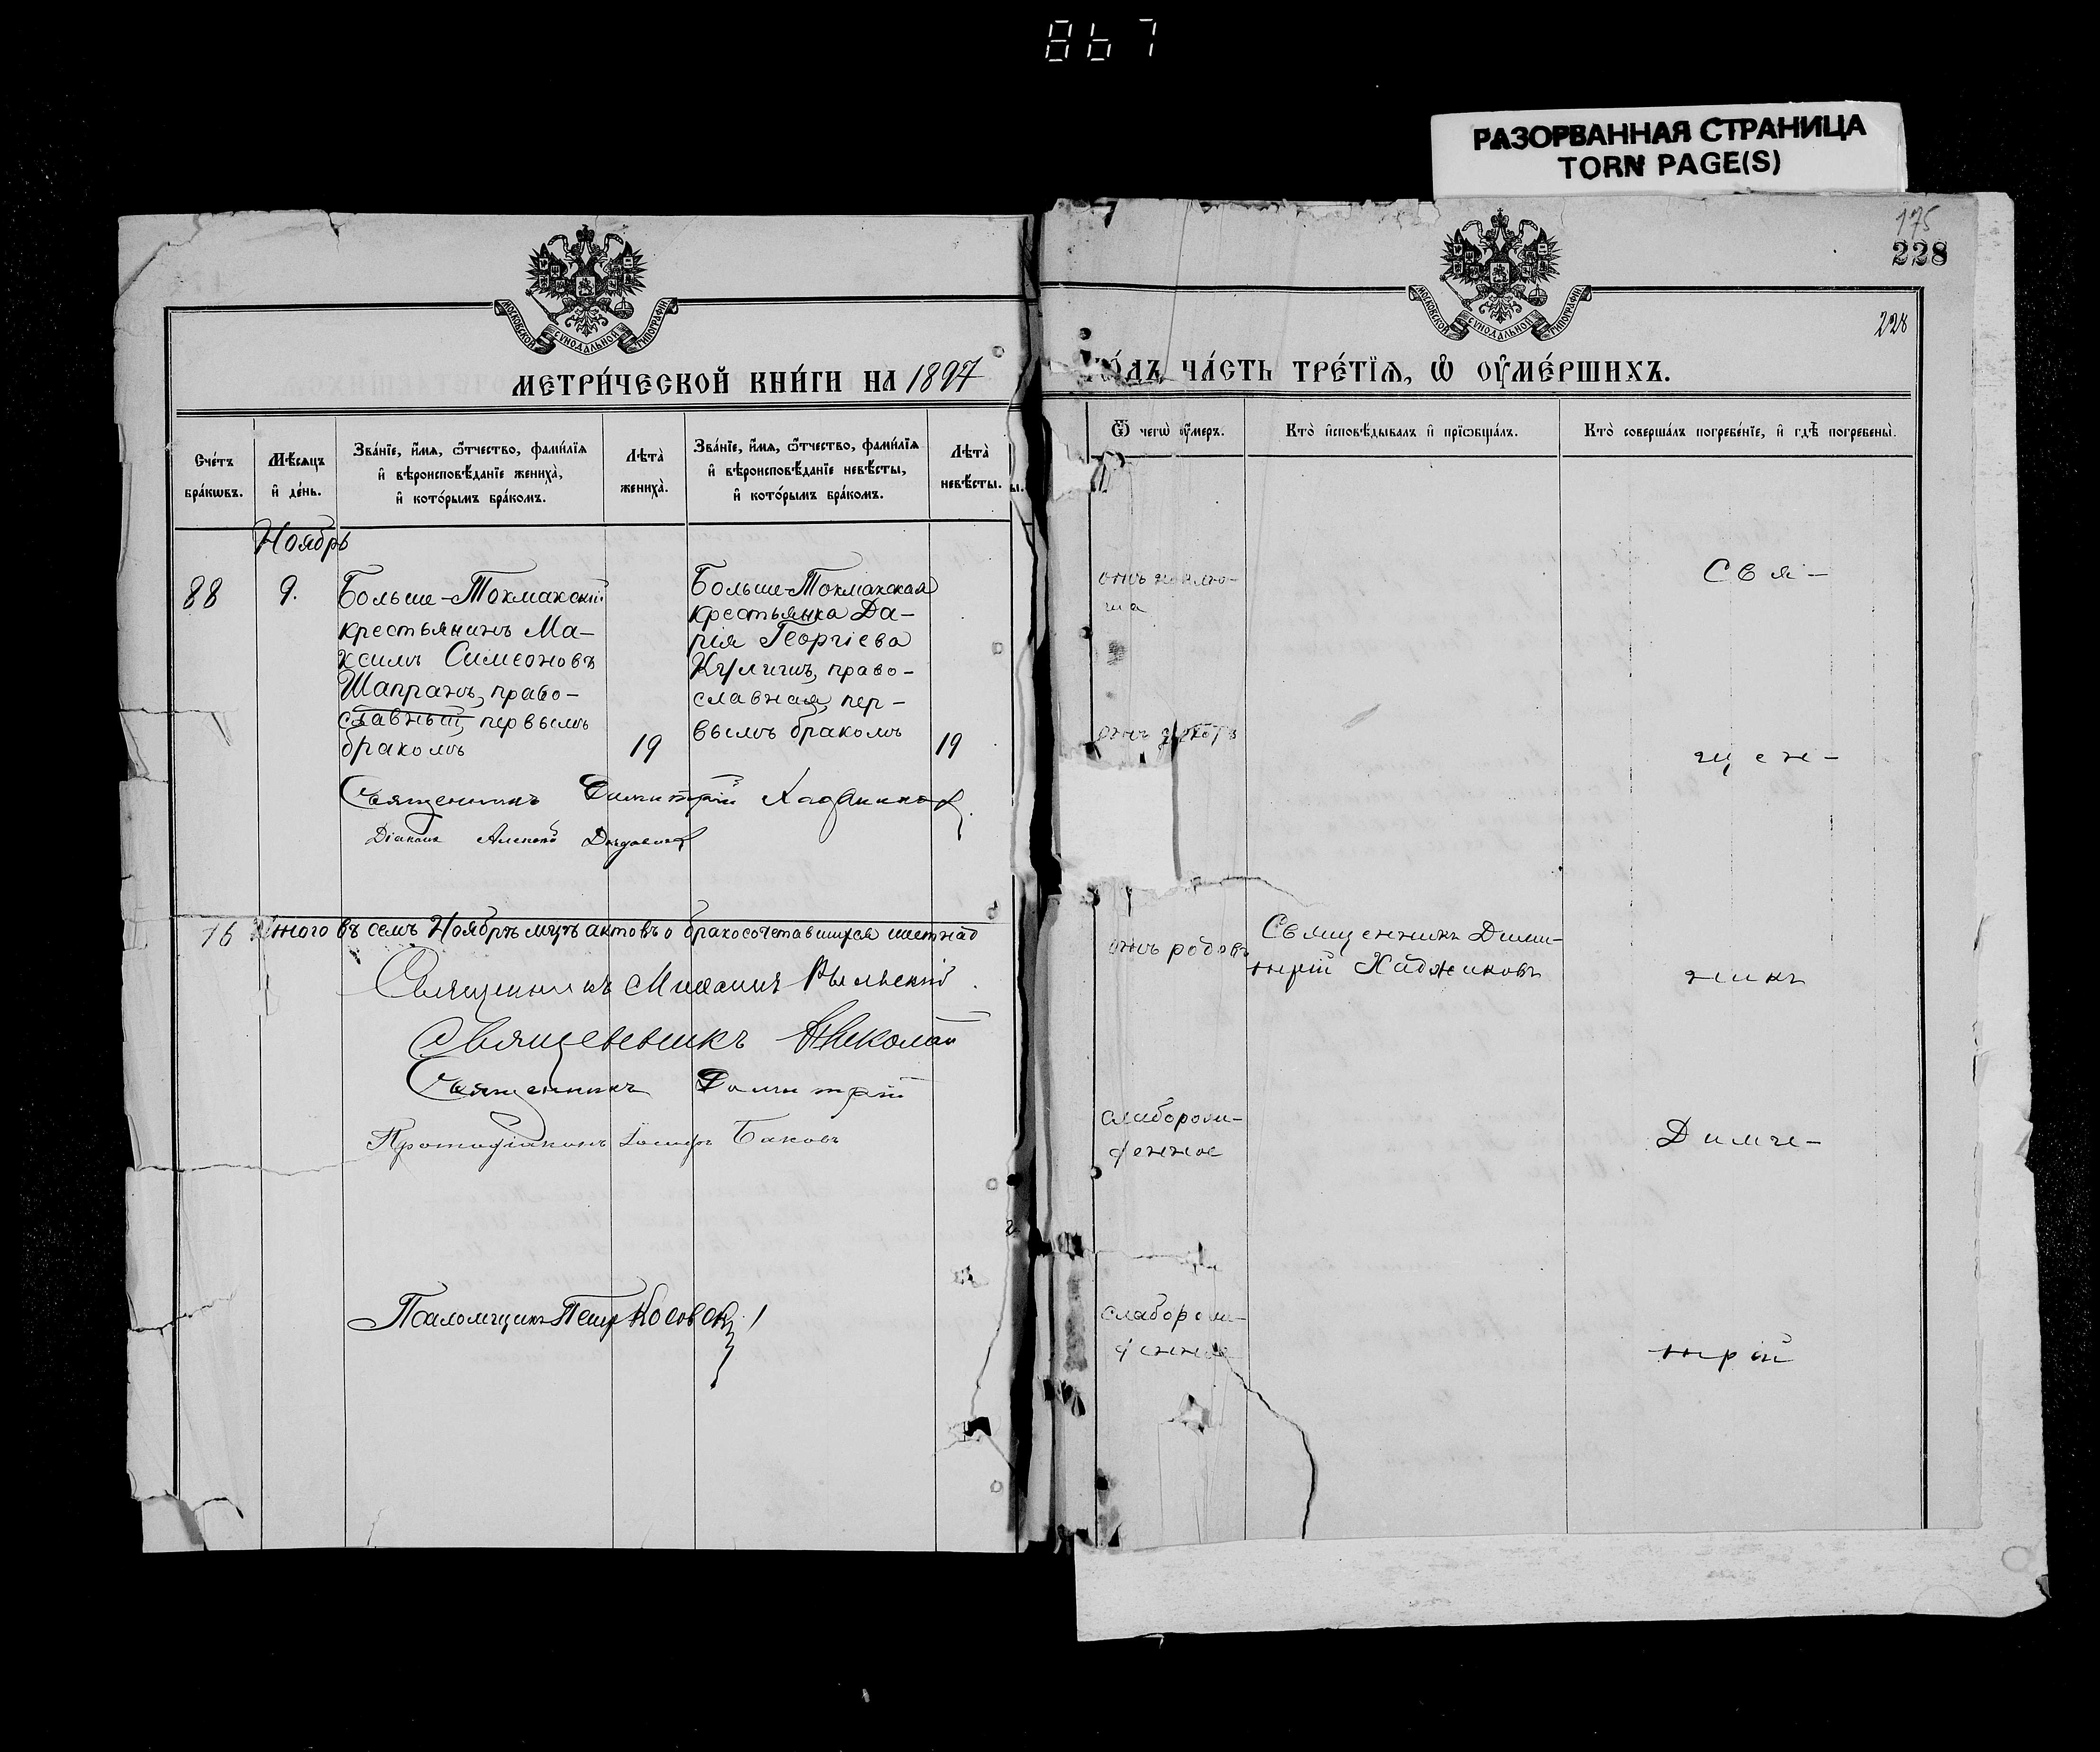 867
РАЗОРВАННАЯ СТРАНИЦА
TORN PAGE(S)
МОСКОВСКОЙ СѴНОДАЛЬНОЙ ТИПОГРАФІИ
МЕТРИ́ЧЕСКОЙ КНИ́ГИ НА 1897
Сче́тъ
бра́кωвъ.
Мѣ́сяцъ
и҆ де́нь.
Зва́нїе, и҆́мя, ѻ҆́тчество, фами́лїя
и҆ вѣроисповѣ́данїе жениха̀,
и҆ кото́рымъ бра́комъ.
Лѣта̀
жениха̀.
Зва́нїе, и҆́мя, ѻ҆́тчество, фами́лїя
и҆ вѣроисповѣ́данїе невѣ́сты,
и҆ кото́рымъ бра́комъ.
Лѣта̀
невѣ́сты.
Ноябрь
88
9.
Больше-Токмакскій
крестьянинъ Ма-
ксимъ Симеоновъ
Шапранъ, право-
славный, первымъ
бракомъ
19
Больше-Токмакская
крестьянка Да-
рія Георгіева
Куличъ, право-
славная, пер-
вымъ бракомъ
19
Священникъ Димитрій Хаджиновъ
Діаконъ Алексій
16
Итого въ семъ Ноябрѣ мцѣ актовъ о бракосочетавшихся шестнад
Священникъ Михаилъ Рыльскій
Священникъ Николай
Священникъ Димитрій
Протодіаконъ Іосифъ Баковъ
Псаломщикъ Петр Косовск
175
228
228
МОСКОВСКОЙ СѴНОДАЛЬНОЙ ТИПОГРАФІИ
о́дъ, ЧА́СТЬ ТРЕ́ТЇѦ, Ѡ҆ ОУ҆МЕ́РШИХЪ.
Ѿ чегѡ̀ ᲂу҆́меръ.
Кто̀ и҆сповѣ́дывалъ и҆ прїѡбща́лъ.
Кто̀ соверша́лъ погребе́нїе, и҆ гдѣ̀ погребены̀.
отъ коклю-
ша
Свя-
отъ
щен-
отъ родовъ
Священникъ Дими-
трій Хаджиновъ
никъ
слаборож-
денное
Дими-
слаборож-
денное
трій